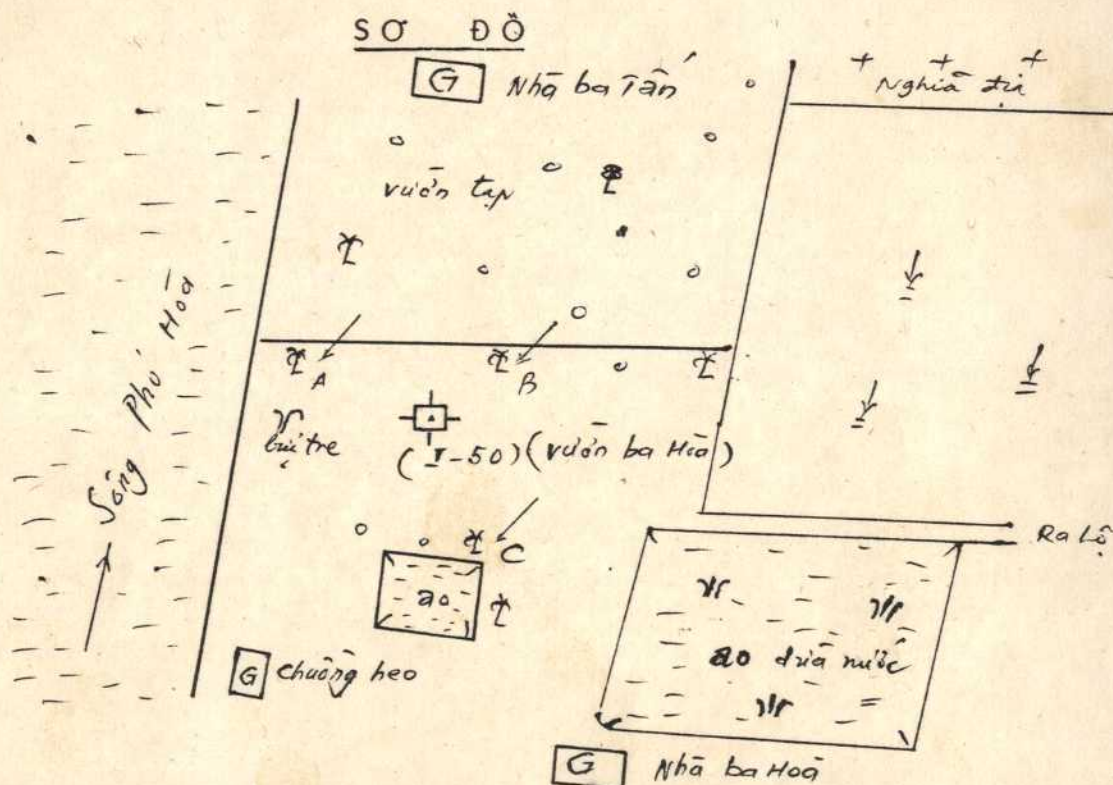 SƠ ĐỒ
G Nhà ba Tấn
Nghĩa địa
vườn tạp
Sông Phú Hòa
A
B
bụi tre
(I-50) (vườn ba Hòa)
C
ao
Ra Lộ
G chuồng heo
ao dừa nước
G Nhà ba Hoà